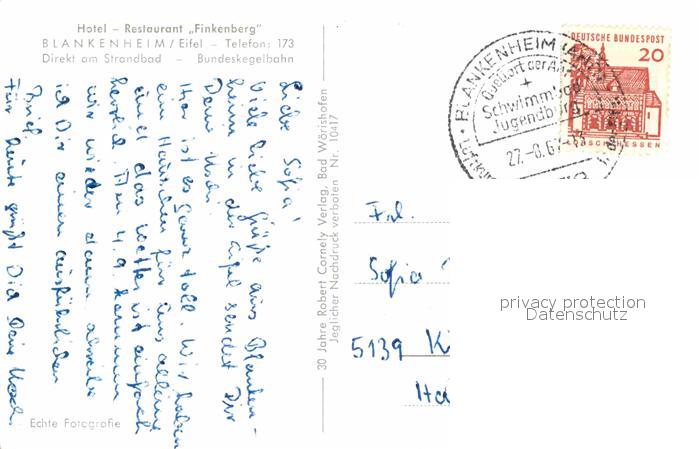 Hotel – Restaurant „Finkenberg"
BLANKENHEIM/Eifel – Telefon: 173
Direkt am Strandbad – Bundeskegelbahn
Liebe Sofia!
Viele liebe Grüße aus Blanken-
heim in der Eifel sendet Dir
Deine Uschi.
Hier ist es ganz toll. Wir haben
ein Häuschen für uns alleine
und das Wetter ist einfach
herrlich. Am 4.9. kommen
wir wieder dann schreibe
ich Dir einen ausführlichen
Brief.
Für heute grüßt Dich Deine Uschi.
Echte Fotografie
30 Jahre Robert Cornely Verlag, Bad Wörishofen
Jeglicher Nachdruck verboten Nr. 110417
BLANKENHEIM (AHR)
Quellort der Ahr
+
Schwimmbad
Jugendburg
27.-8.6
DEUTSCHE BUNDESPOST
20
Frl.
Sofia
5139 K
Ha
privacy protection
Datenschutz